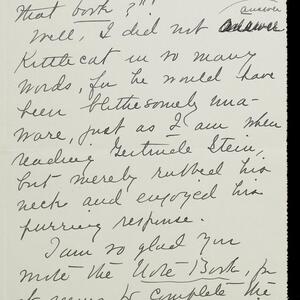 that book?"!
answer
Well, I did not answer
Kittlecat in so many
words, for he would have
been blithesomely una-
ware, just as I am when
reading Gertrude Stein,
but merely rubbed his
neck and enjoyed his
purring response.
I am so glad you
wrote the Note Book, for
it seems to complete the